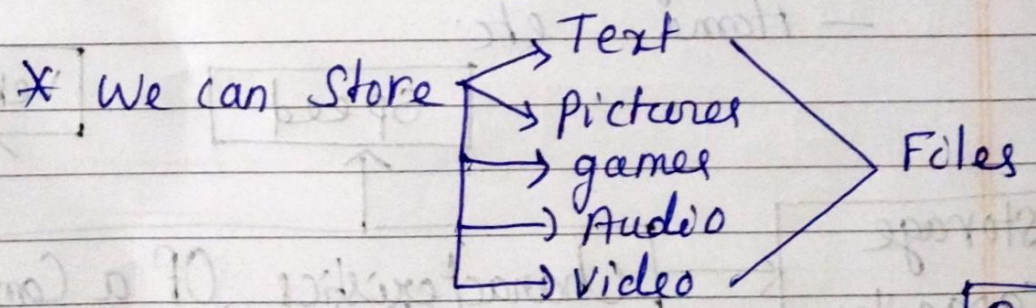 * We can Store
Text
Pictures
games
Audio
Video
Files